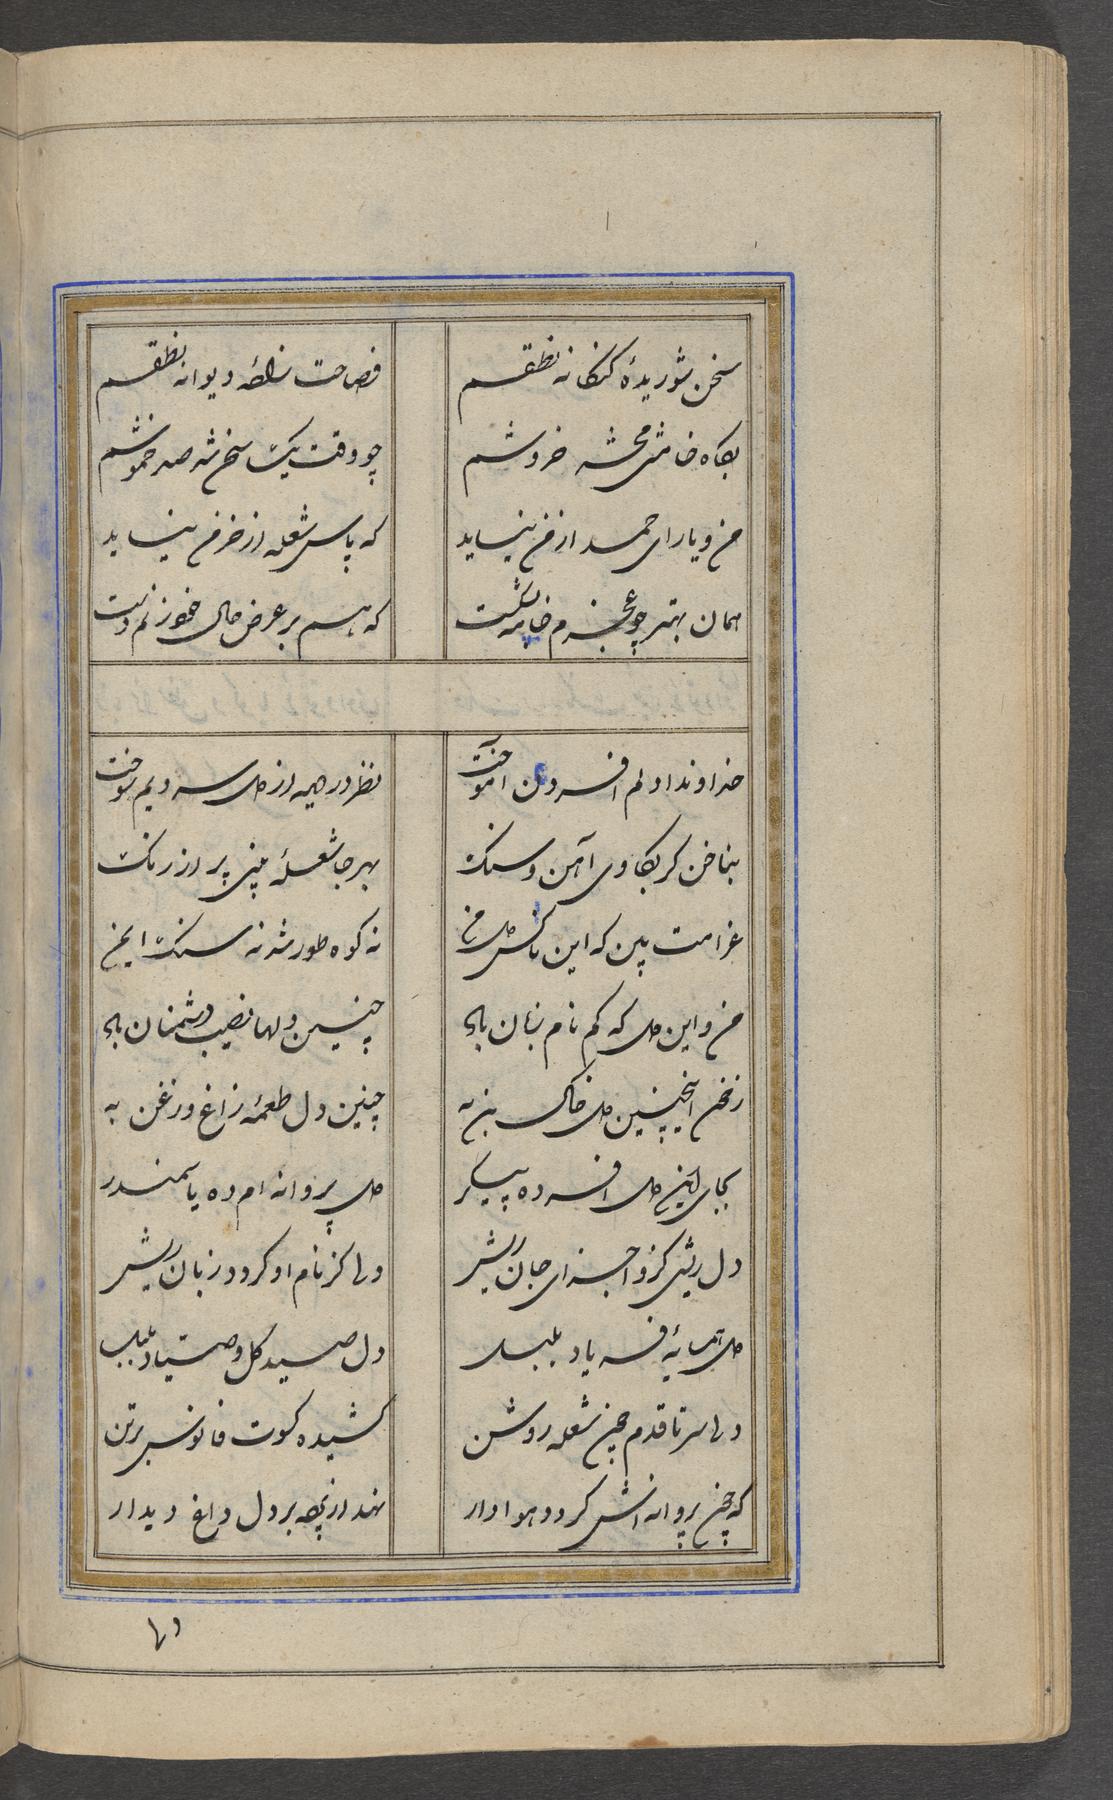 سخن شوریدهٔ کنکانه نطقم
فصاحت نالهٔ دیوانه نطقم
بکاه خامشی محشر خروشم
چو وقت یک سخن شد صد خموشم
من و یارای حمد از من نیاید
که پاس شعله از خرمن نیاید
همان بهتر چو عجزم خامه بشکست
که هم بر عرض حال خود زنم دست
خداوندا دلم افسردن آموخت
نظر در دیده از دل سردیم سوخت
بناخن کر بکاوی آهن و سنک
بهر جا شعلهٔ بینی پر از رنک
غرامت بین که این ناکس دل من
نه کوه طور شد نه سنک ایمن
من و این دل که کم نام بتان باد
چنین دلها نصیب دشمنان باد
زمن اینچنین دل خاک بن به
چنین دل طعمهٔ زاغ و زغن به
بجای این دل افسرده پیکر
دل پروانه ام ده یا سمندر
دل ریشی کزو اجزای جان ریش
دلی کز نام او کردد زبان ریش
دل همسایهٔ فریاد بلبل
دل صید کل و صیاد بلبل
دلی سر تا قدم چون شعله روشن
کشیده کسوت فانوس برتن
که چون پروانه اش کردد هوادار
نهد از پنجه بر دل داغ دیدار
دلی